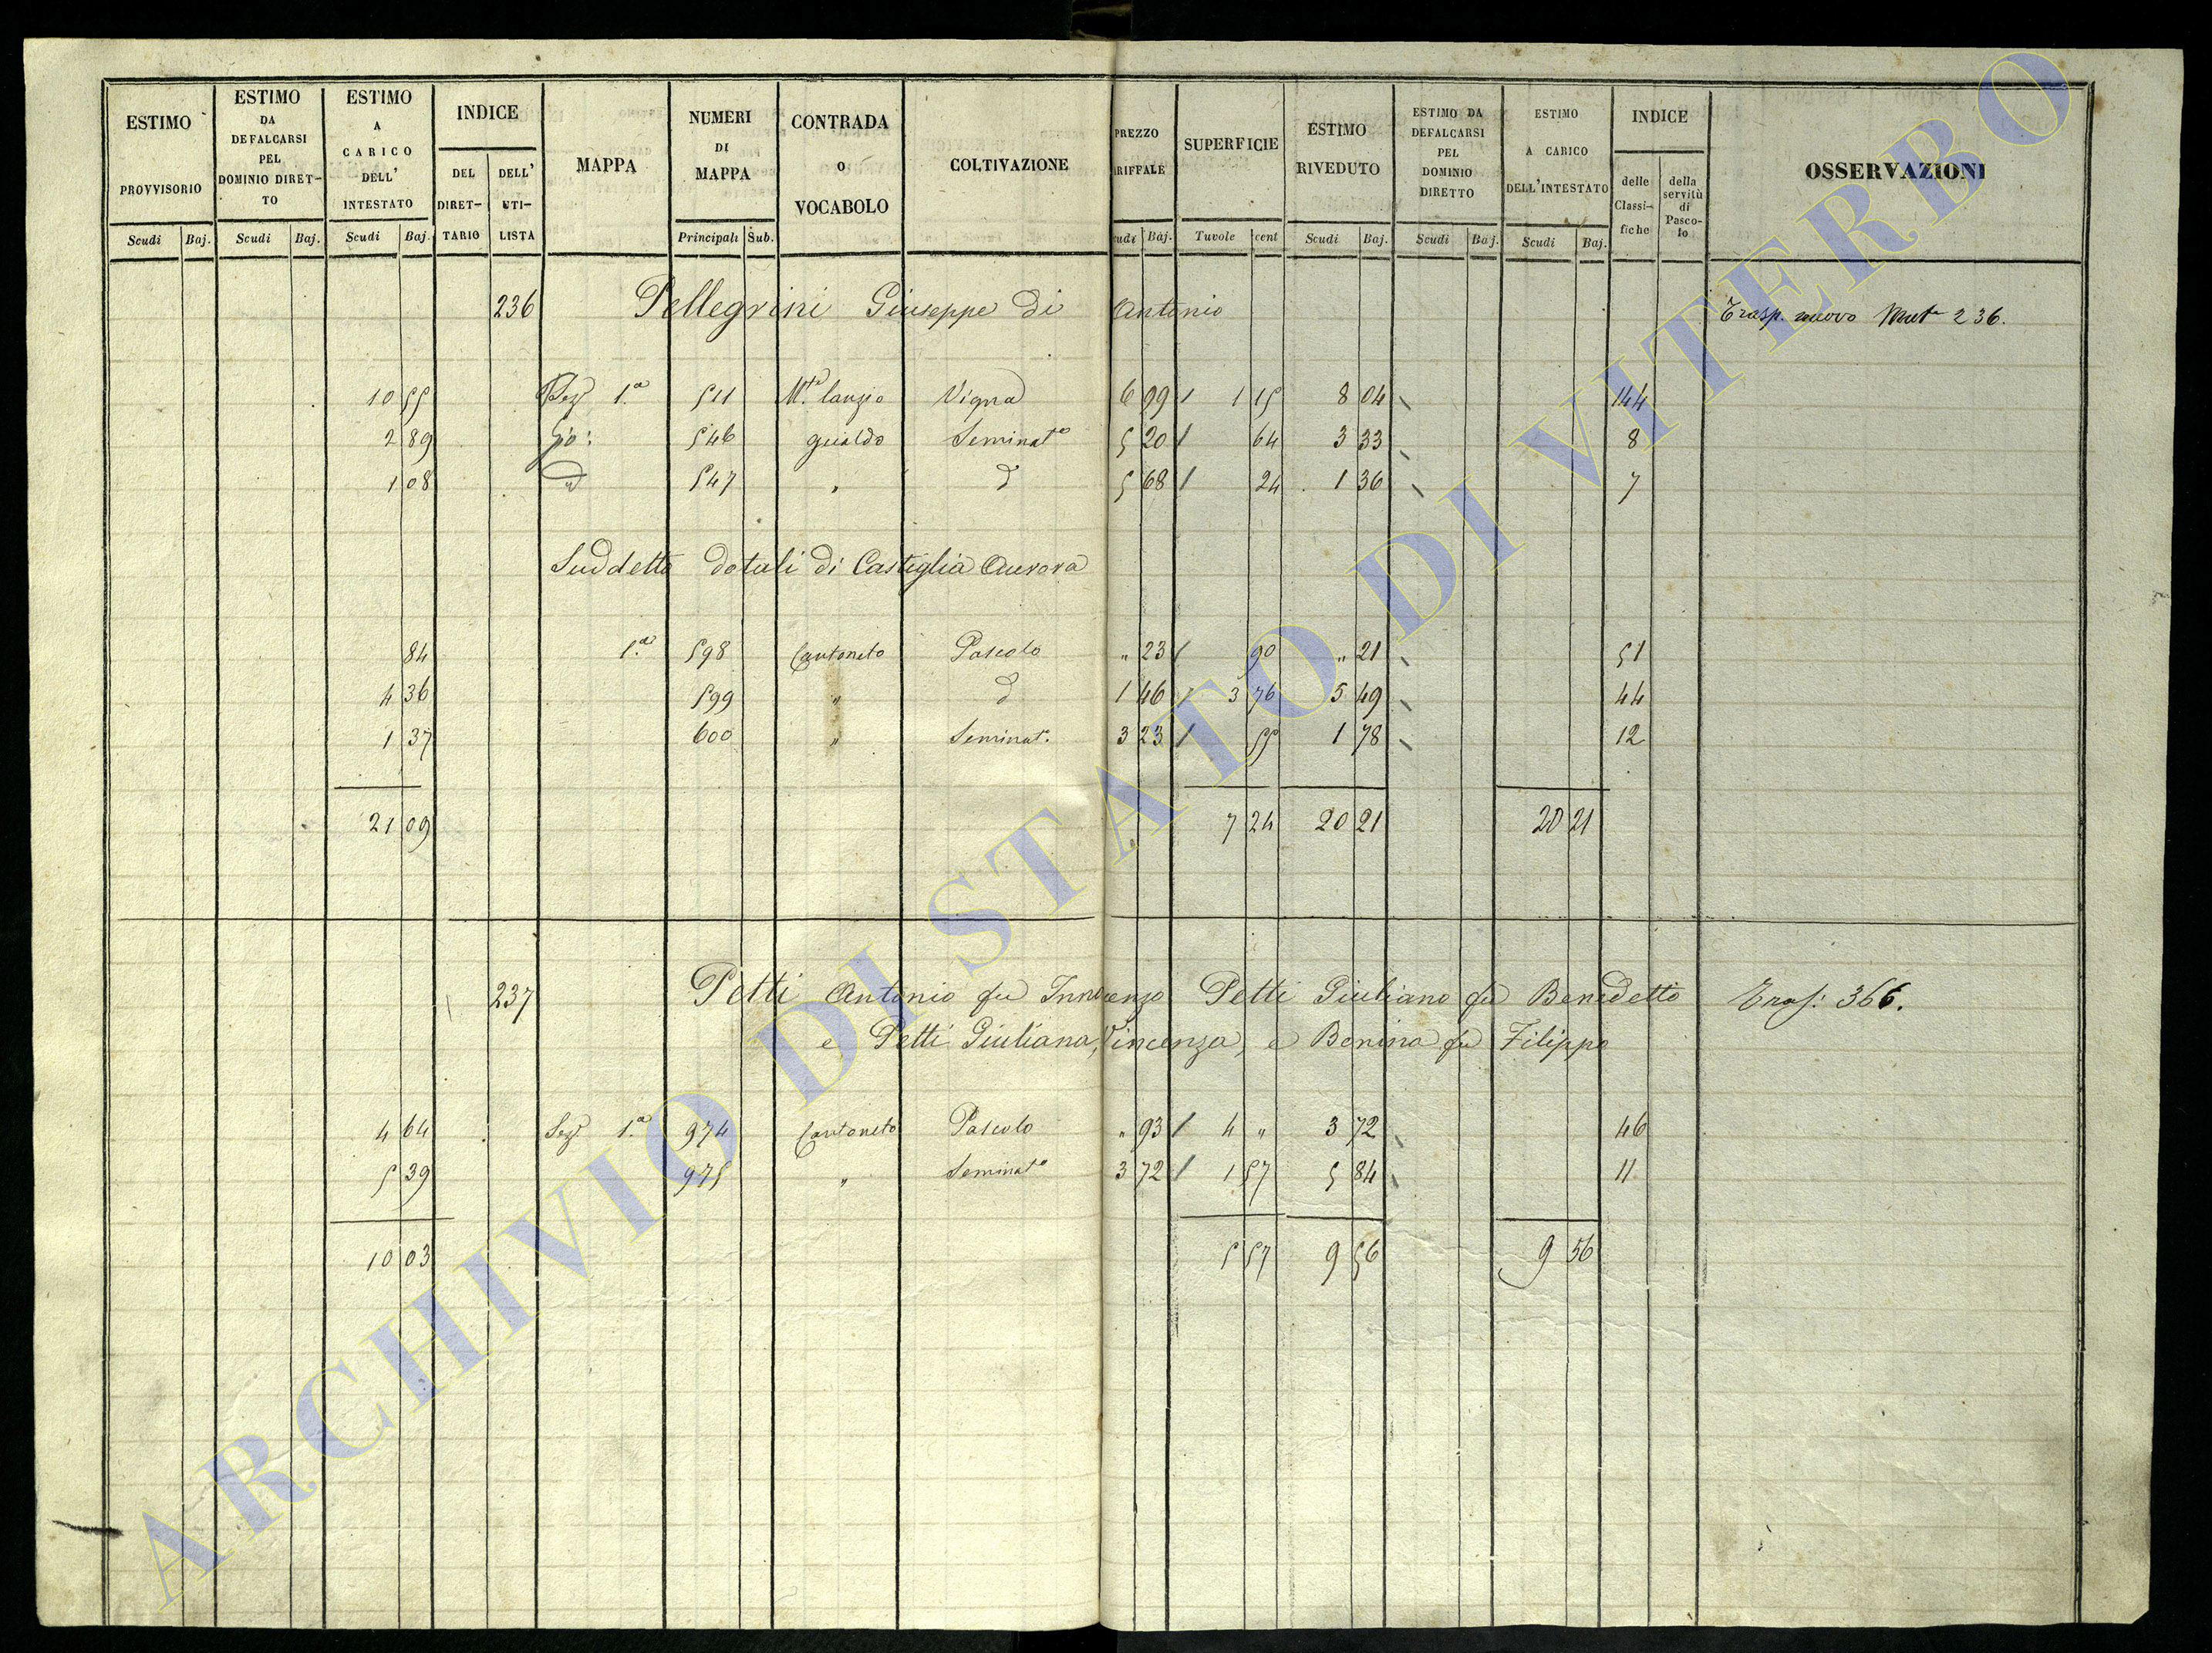 ESTIMO PROVVISORIO
ESTIMO DA DEFALCARSI PEL DOMINIO DIRET-TO
ESTIMO A CARICO DELL' INTESTATO
INDICE
DEL DIRET-TARIO
DELL' UTI-LISTA
MAPPA
NUMERI DI MAPPA
CONTRADA o VOCABOLO
COLTIVAZIONE
PREZZO RIFFALE
SUPERFICIE
ESTIMO RIVEDUTO
ESTIMO DA DEFALCARSI PEL DOMINIO DIRETTO
ESTIMO A CARICO DELL'INTESTATO
INDICE
delle Classi-fiche
della servitù di Pasco-lo
OSSERVAZIONI
Scudi Baj. Scudi Baj. Scudi Baj. Principali Sub. udi Baj. Tavole cent Scudi Baj. Scudi Baj. Scudi Baj.
236 Pellegrini Giuseppe di Antonio Trasp. nuovo Mut 236.
10 55 Sez 1.a 511 M.te lanzio Vigna 6 99 1 15 8 04 144
2 89 546 gualdo Seminat.o 5 20 64 3 33 8
1 08 547 " d 5 68 24 1 36 7
Suddetto dotali di Castiglia Aurora
84 1.a 598 Cantoneto Pascolo " 23 90 " 21 51
4 36 599 " d 1 46 3 76 5 49 44
1 37 600 " Seminat. 3 23 55 1 78 12
21 09 7 24 20 21 20 21
237 Petti Antonio fu Innocenzo Petti Giuliano fu Benedetto Tras: 366.
e Petti Giuliana, Vincenza, e Benina fu Filippo
4 64 Sez 1.a 974 Cantoneto Pascolo " 93 4 " 3 72 46
5 39 975 " Seminat.o 3 72 1 57 5 84 11
10 03 5 57 9 56 9 56
ARCHIVIO DI STATO DI VITERBO